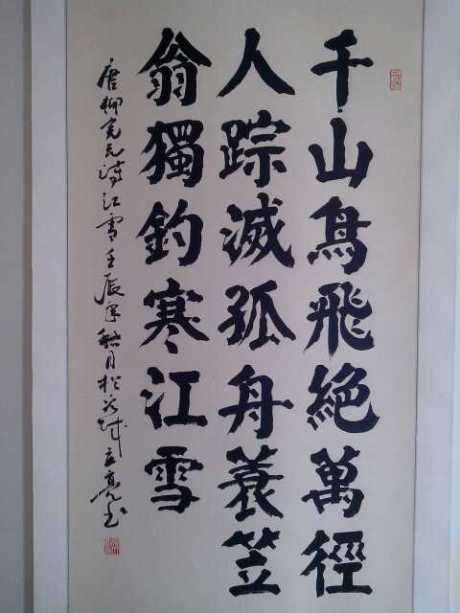 千山鳥飛絕萬徑
人踪滅孤舟蓑笠
翁獨釣寒江雪
唐柳宗元詩江雪壬辰年秋月於